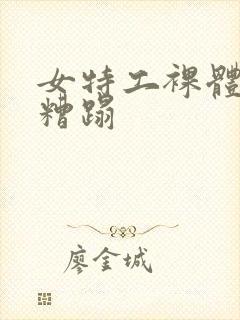 女特工裸體
糟蹋
廖金城